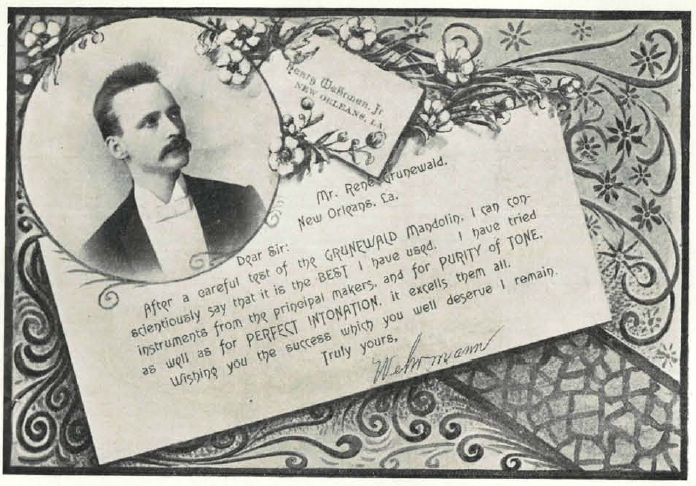 Henry Wehrmen, Jr
NEW ORLEANS, LA.
Mr. René Grunewald.
New Orleans, La.
Dear Sir:
After a careful test of the GRUNEWALD Mandolin, I can con-
scientiously say that it is the BEST I have used. I have tried
instruments from the principal makers, and for PURITY of TONE,
as well as for PERFECT INTONATION, it excells them all.
Wishing you the success which you well deserve I remain.
Truly yours,
Wehrmann